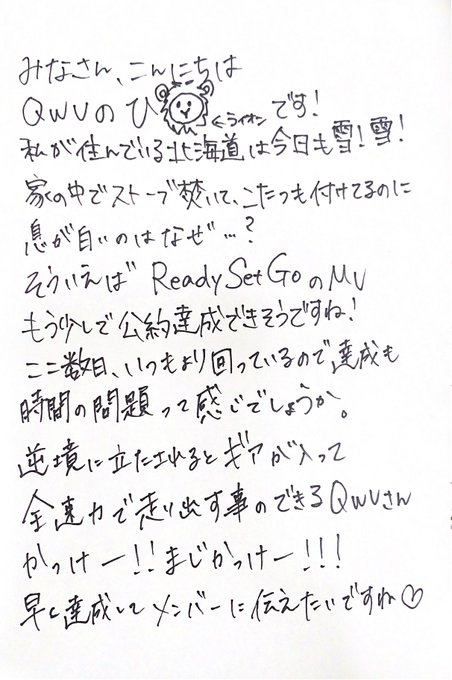 みなさん、こんにちは
QWVのひ ←ライオン です!
私が住んでいる北海道は今日も雪!雪!
家の中でストーブ焚いて、こたつも付けてるのに
息が白いのはなぜ…?
そういえば ReadySetGoのMV
もう少しで公約達成できそうですね!
ここ数日、いつもより回っているので達成も
時間の問題って感じでしょうか。
逆境に立たされるとギアが入って
全速力で走り出す事のできるQWVさん
かっけー!!まじかっけー!!!
早く達成してメンバーに伝えたいですね♡